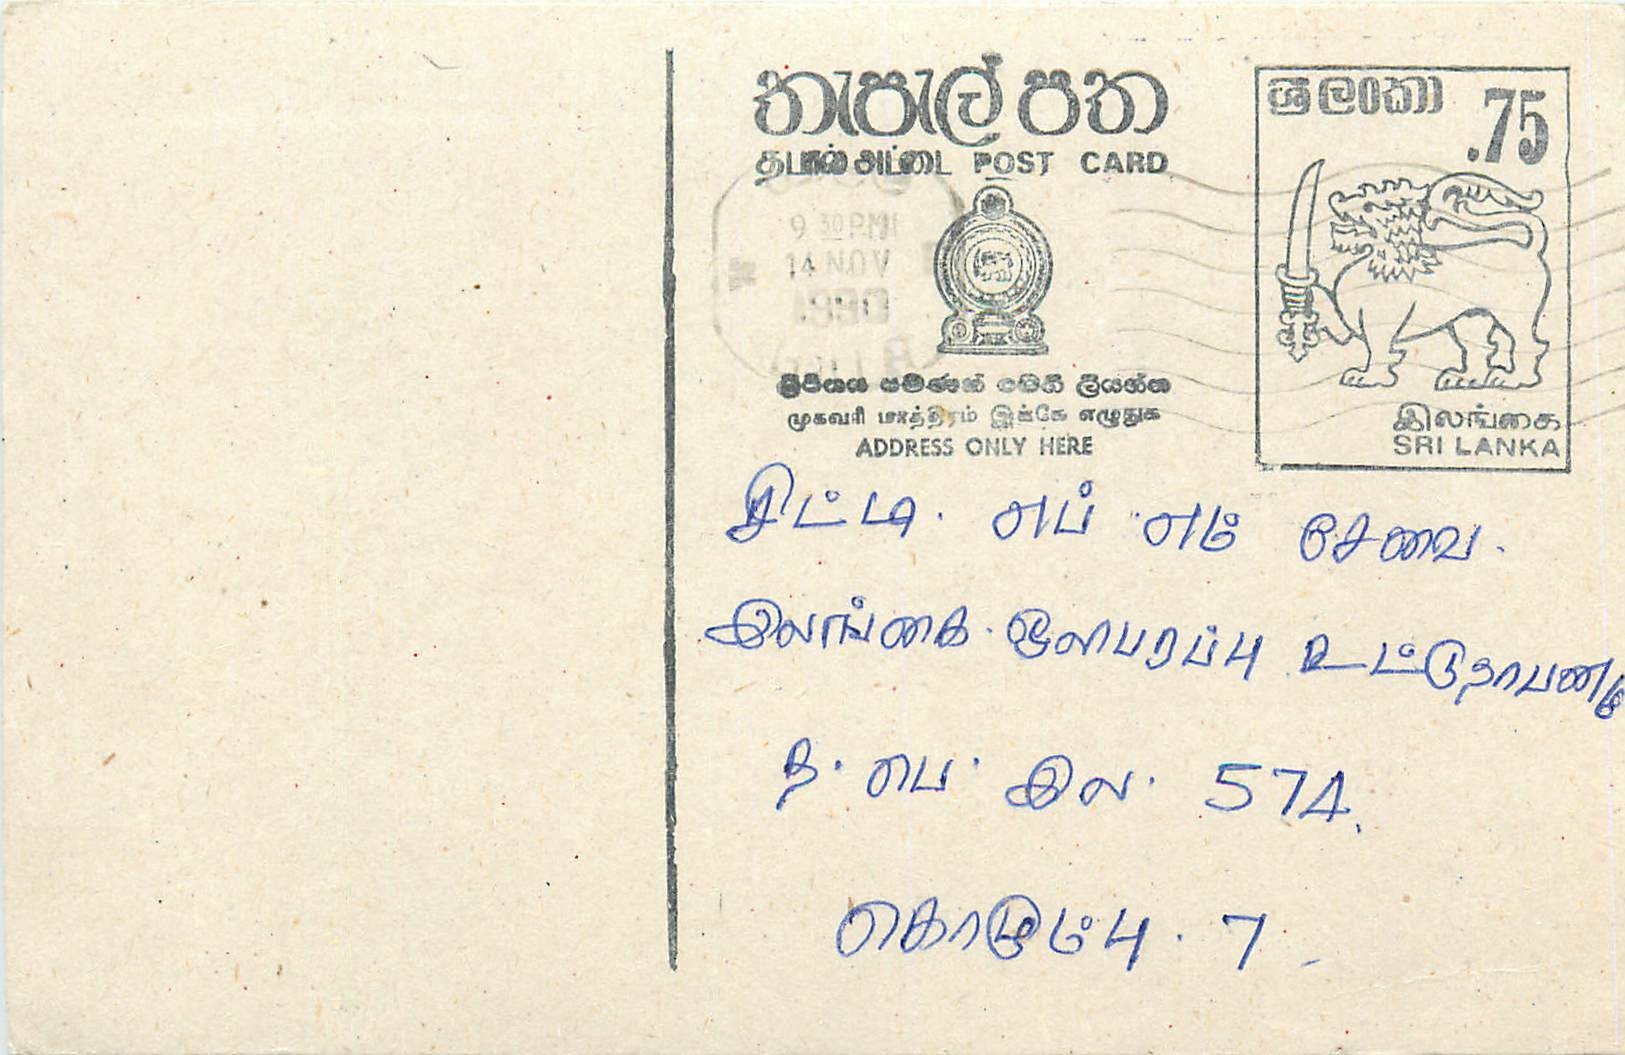 තැපැල් පත
ශ්‍රී ලංකා .75
தபால் அட்டை POST CARD
9 30 PM
14 NOV
ලිපිනය පමණක් මෙහි ලියන්න
முகவரி மாத்திரம் இங்கே எழுதுக
ADDRESS ONLY HERE
இலங்கை
SRI LANKA
சிட்டி. எப் எம் சேவை.
இலங்கை. ஒலிபரப்பு
த. பெ. இல. 574.
கொழும்பு. 7